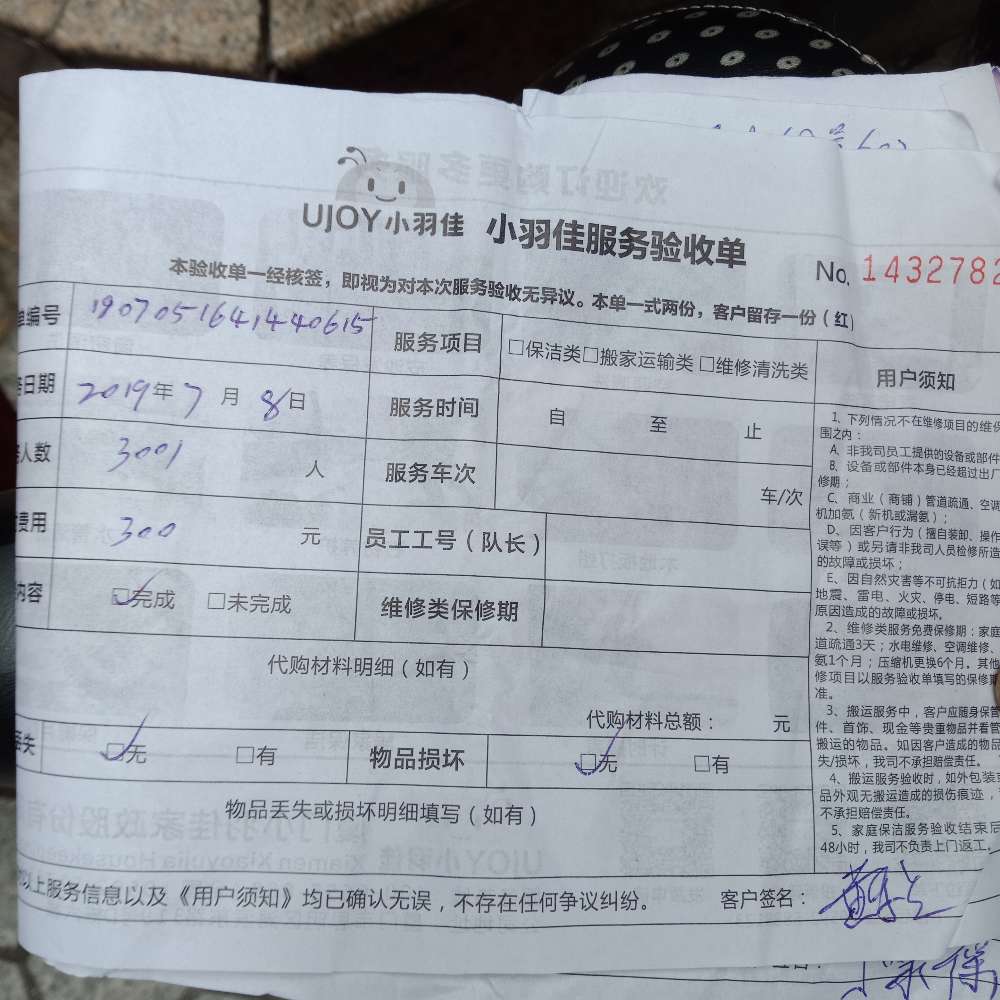 UJOY小羽佳 小羽佳服务验收单
No. 1432782
本验收单一经核签，即视为对本次服务验收无异议。本单一式两份，客户留存一份（红）
单编号 1907051641440615 服务项目 □保洁类□搬家运输类□维修清洗类
日期 2019年7月8日 服务时间 自 至 止
人数 3001 人 服务车次 车/次
费用 300 元 员工工号（队长）
内容 □完成 □未完成 维修类保修期
代购材料明细（如有）
代购材料总额： 元
丢失 □无 □有 物品损坏 □无 □有
物品丢失或损坏明细填写（如有）
以上服务信息以及《用户须知》均已确认无误，不存在任何争议纠纷。 客户签名：
用户须知
1、下列情况不在维修项目的维保
围之内：
A、非我司员工提供的设备或部件
B、设备或部件本身已经超过出厂
修期；
C、商业（商铺）管道疏通、空调
机加氨（新机或漏氨）；
D、因客户行为（擅自装卸、操作
误等）或另请非我司人员检修所造
的故障或损坏；
E、因自然灾害等不可抗拒力（如
地震、雷电、火灾、停电、短路等
原因造成的故障或损坏。
2、维修类服务免费保修期：家庭
道疏通3天；水电维修、空调维修、
氨1个月；压缩机更换6个月。其他
修项目以服务验收单填写的保修期
准。
3、搬运服务中，客户应随身保管
件、首饰、现金等贵重物品并看管
搬运的物品。如因客户造成的物品
失/损坏，我司不承担赔偿责任。
4、搬运服务验收时，如外包装或
品外观无搬运造成的损伤痕迹，
不承担赔偿责任。
5、家庭保洁服务验收结束后
48小时，我司不负责上门返工。